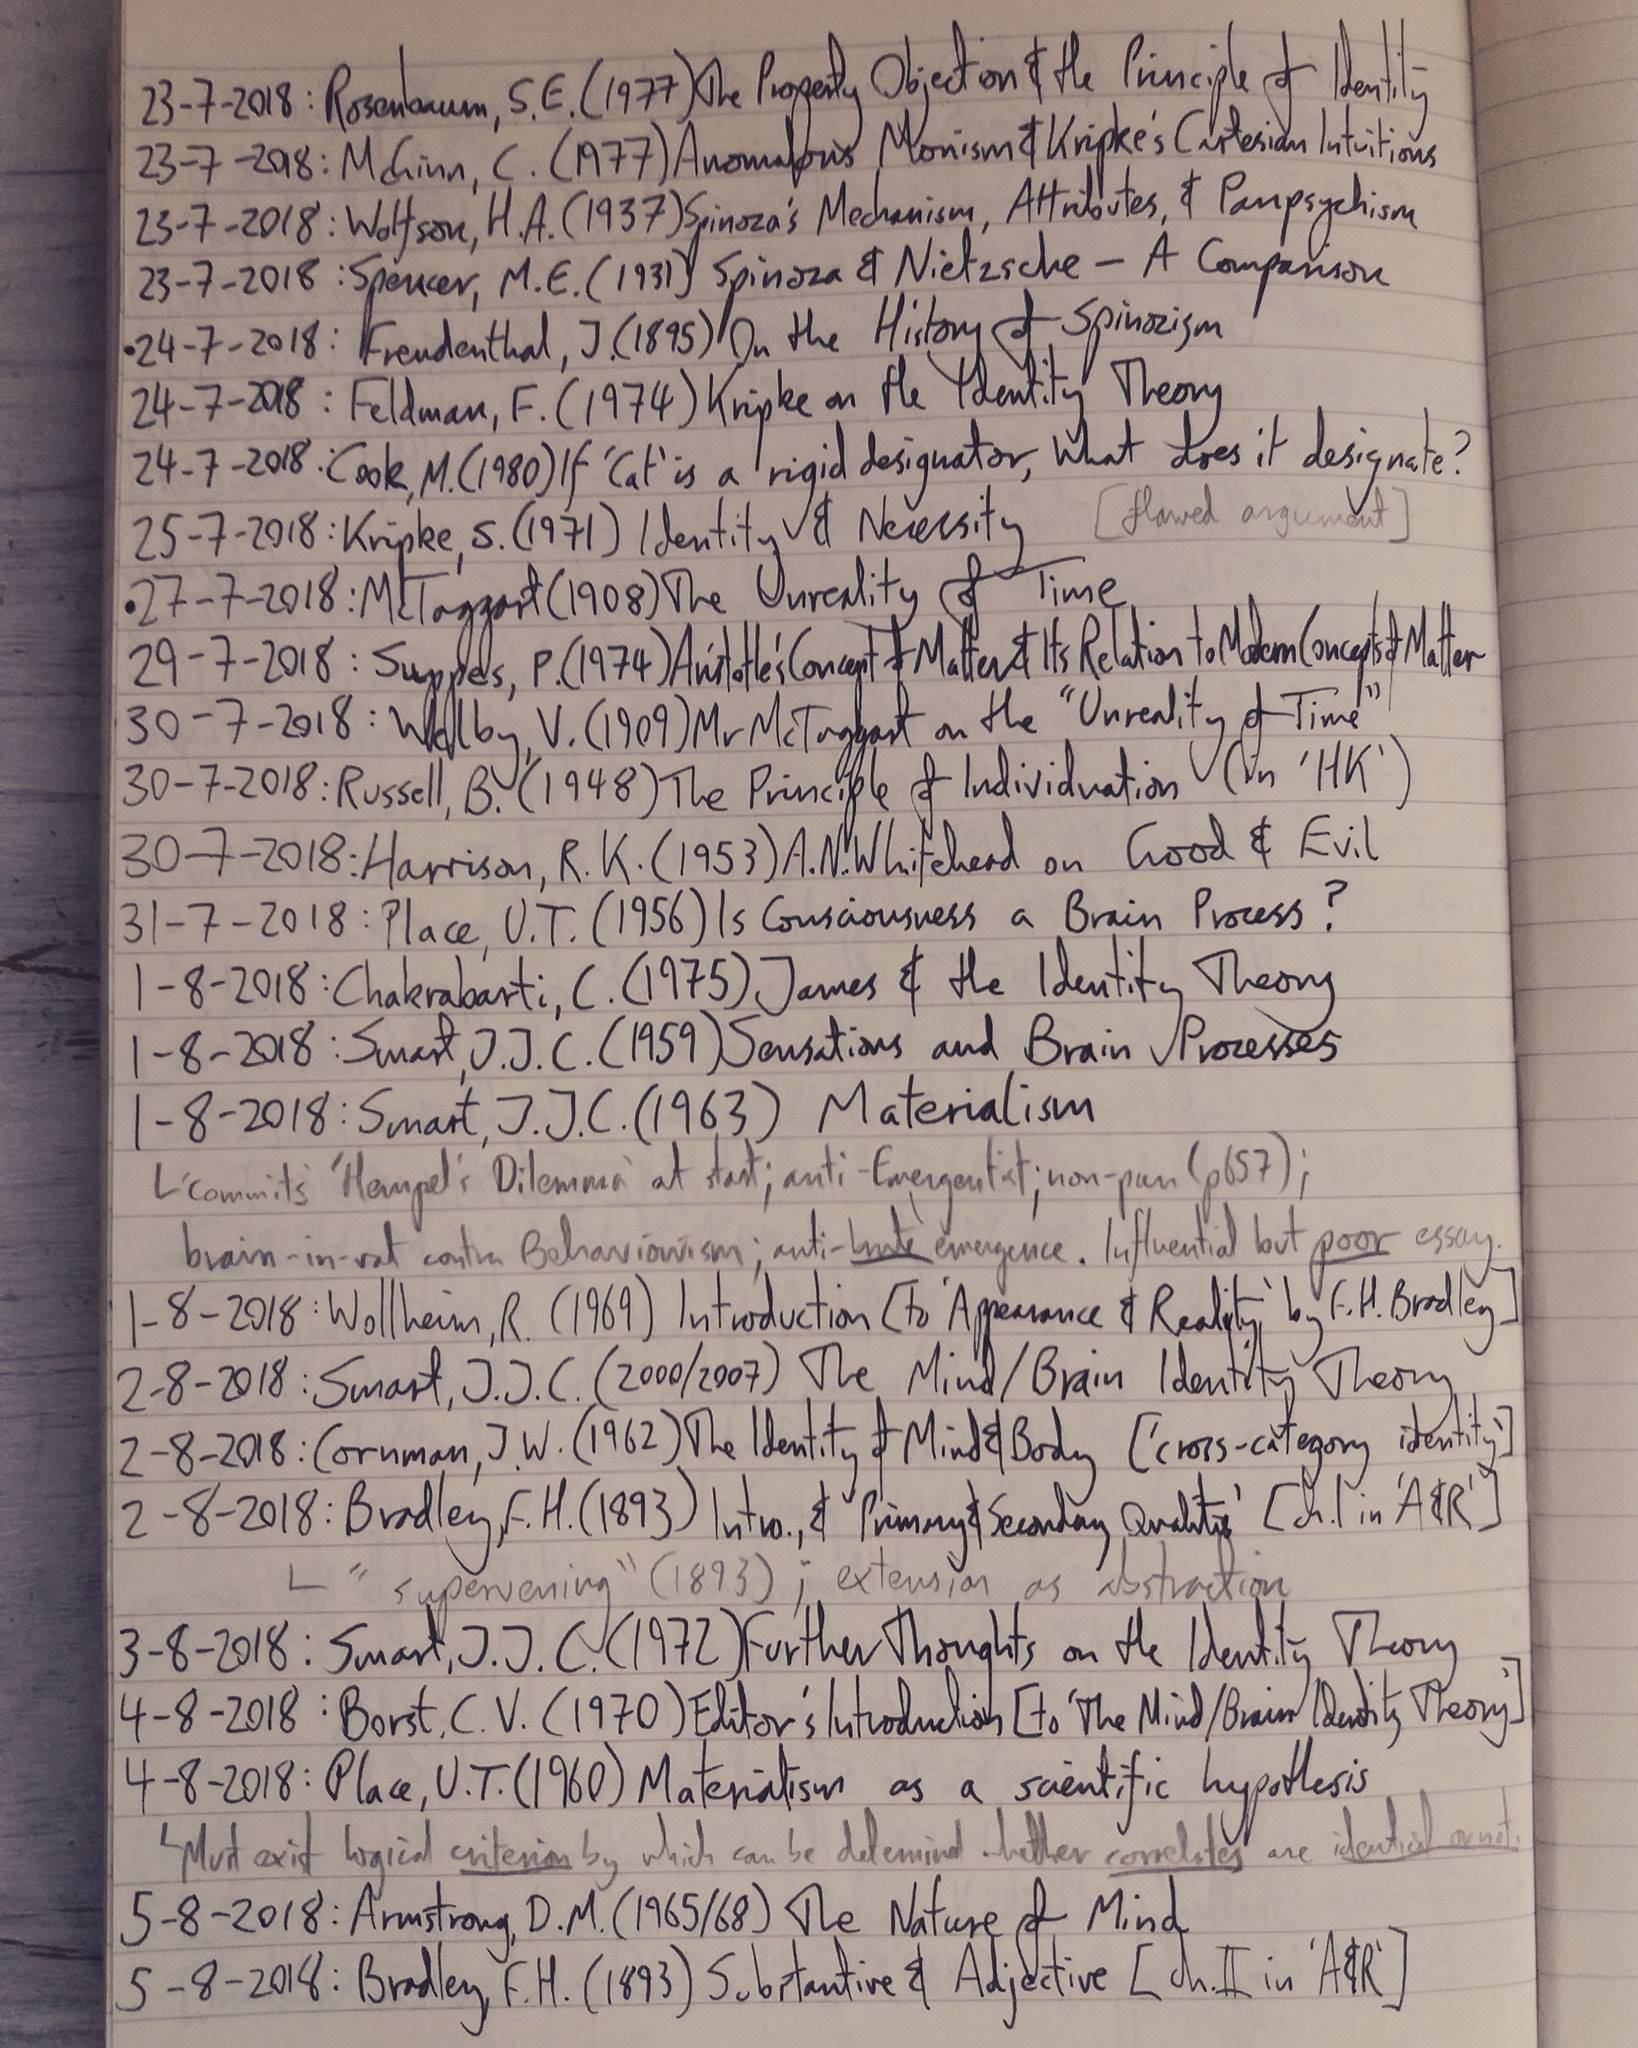 23-7-2018: Rosenbaum, S.E. (1977) The Property Objection & the Principle of Identity
23-7-2018: McGinn, C. (1977) Anomalous Monism & Kripke's Cartesian Intuitions
23-7-2018: Wolfson, H.A. (1937) Spinoza's Mechanism, Attributes, & Panpsychism
23-7-2018: Spencer, M.E. (1931) Spinoza & Nietzsche – A Comparison
•24-7-2018: Freudenthal, J. (1895) On the History of Spinozism
24-7-2018: Feldman, F. (1974) Kripke on the Identity Theory
24-7-2018: Cook, M. (1980) If 'Cat' is a rigid designator, what does it designate?
25-7-2018: Kripke, S. (1971) Identity & Necessity [flawed argument]
•27-7-2018: McTaggart (1908) The Unreality of Time
29-7-2018: Suppes, P. (1974) Aristotle's Concept of Matter & Its Relation to Modern Concepts of Matter
30-7-2018: Welby, V. (1909) Mr McTaggart on the "Unreality of Time"
30-7-2018: Russell, B. (1948) The Principle of Individuation (in 'HK')
30-7-2018: Harrison, R.K. (1953) A.N. Whitehead on Good & Evil
31-7-2018: Place, U.T. (1956) Is Consciousness a Brain Process?
1-8-2018: Chakrabarti, C. (1975) James & the Identity Theory
1-8-2018: Smart, J.J.C. (1959) Sensations and Brain Processes
1-8-2018: Smart, J.J.C. (1963) Materialism
commits 'Hempel's Dilemma' at start; anti-Emergentist; non-pan (p657);
brain-in-vat contra Behaviourism; anti-brute emergence. Influential but poor essay.
1-8-2018: Wollheim, R. (1969) Introduction [to 'Appearance & Reality' by F.H. Bradley]
2-8-2018: Smart, J.J.C. (2000/2007) The Mind/Brain Identity Theory
2-8-2018: Cornman, J.W. (1962) The Identity of Mind & Body ['cross-category identity']
2-8-2018: Bradley, F.H. (1893) Intro., & 'Primary & Secondary Qualities' [ch. I in 'A&R']
"supervening" (1893); extension as abstraction
3-8-2018: Smart, J.J.C. (1972) Further Thoughts on the Identity Theory
4-8-2018: Borst, C.V. (1970) Editor's Introduction [to 'The Mind/Brain Identity Theory']
4-8-2018: Place, U.T. (1960) Materialism as a scientific hypothesis
Must exist logical criterion by which can be determined whether correlates are identical or not.
5-8-2018: Armstrong, D.M. (1965/68) The Nature of Mind
5-8-2018: Bradley, F.H. (1893) Substantive & Adjective [ch. II in 'A&R']